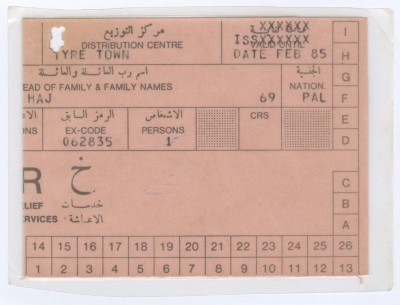 مركز التوزيع
XXXXXX
DISTRIBUTION CENTRE
ISSXXXXXX
VALID UNTIL
TYRE TOWN
DATE FEB 85
اسم رب العائلة والعائلة
الجنسية
EAD OF FAMILY & FAMILY NAMES
NATION.
HAJ
69
PAL
الرمز السابق
الاشخاص
ONS
EX-CODE
PERSONS
CRS
062835
1
R
خ
LIEF
خدمات
ERVICES -
الاعاشة -
I
H
G
F
E
D
C
B
A
14 15 16 17 18 19 20 21 22 23 24 25 26
1 2 3 4 5 6 7 8 9 10 11 12 13